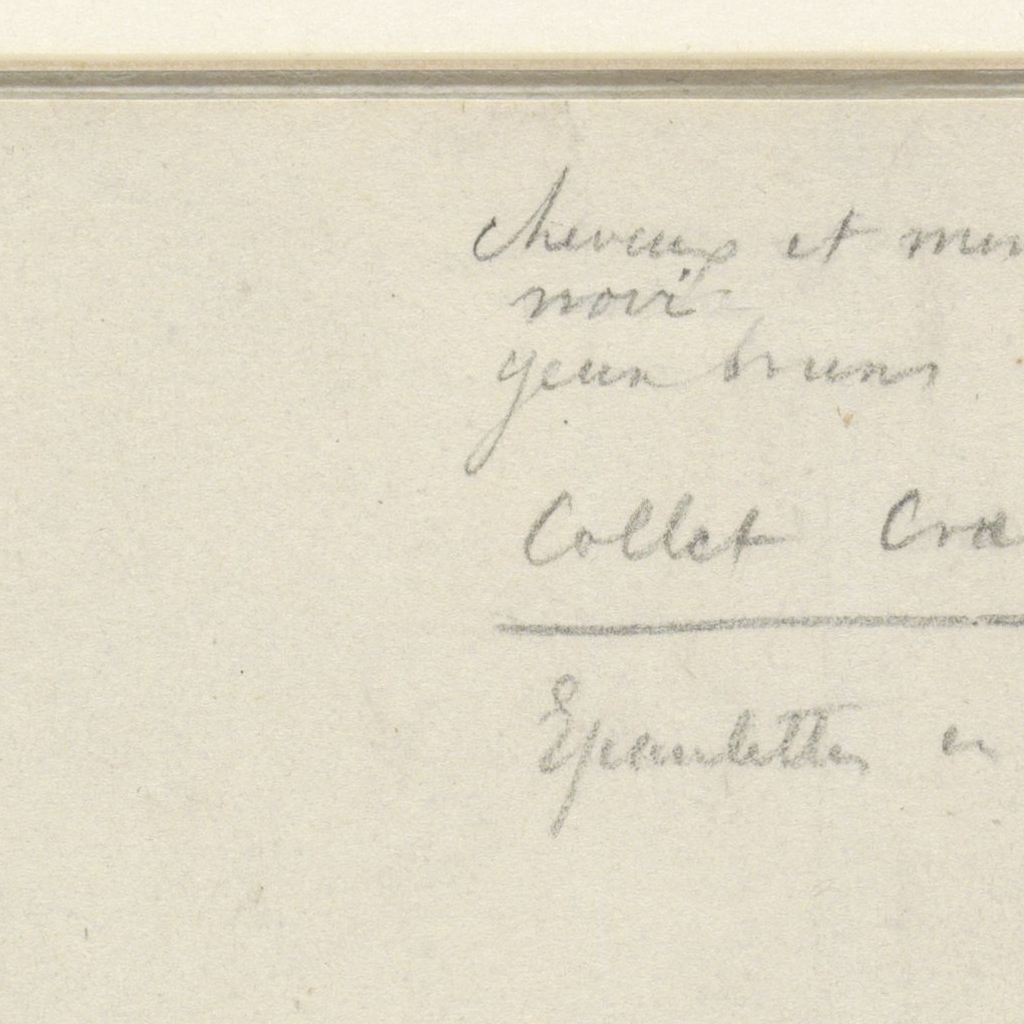 cheveux et
noirs
yeux bruns
Collet
Epaulettes en